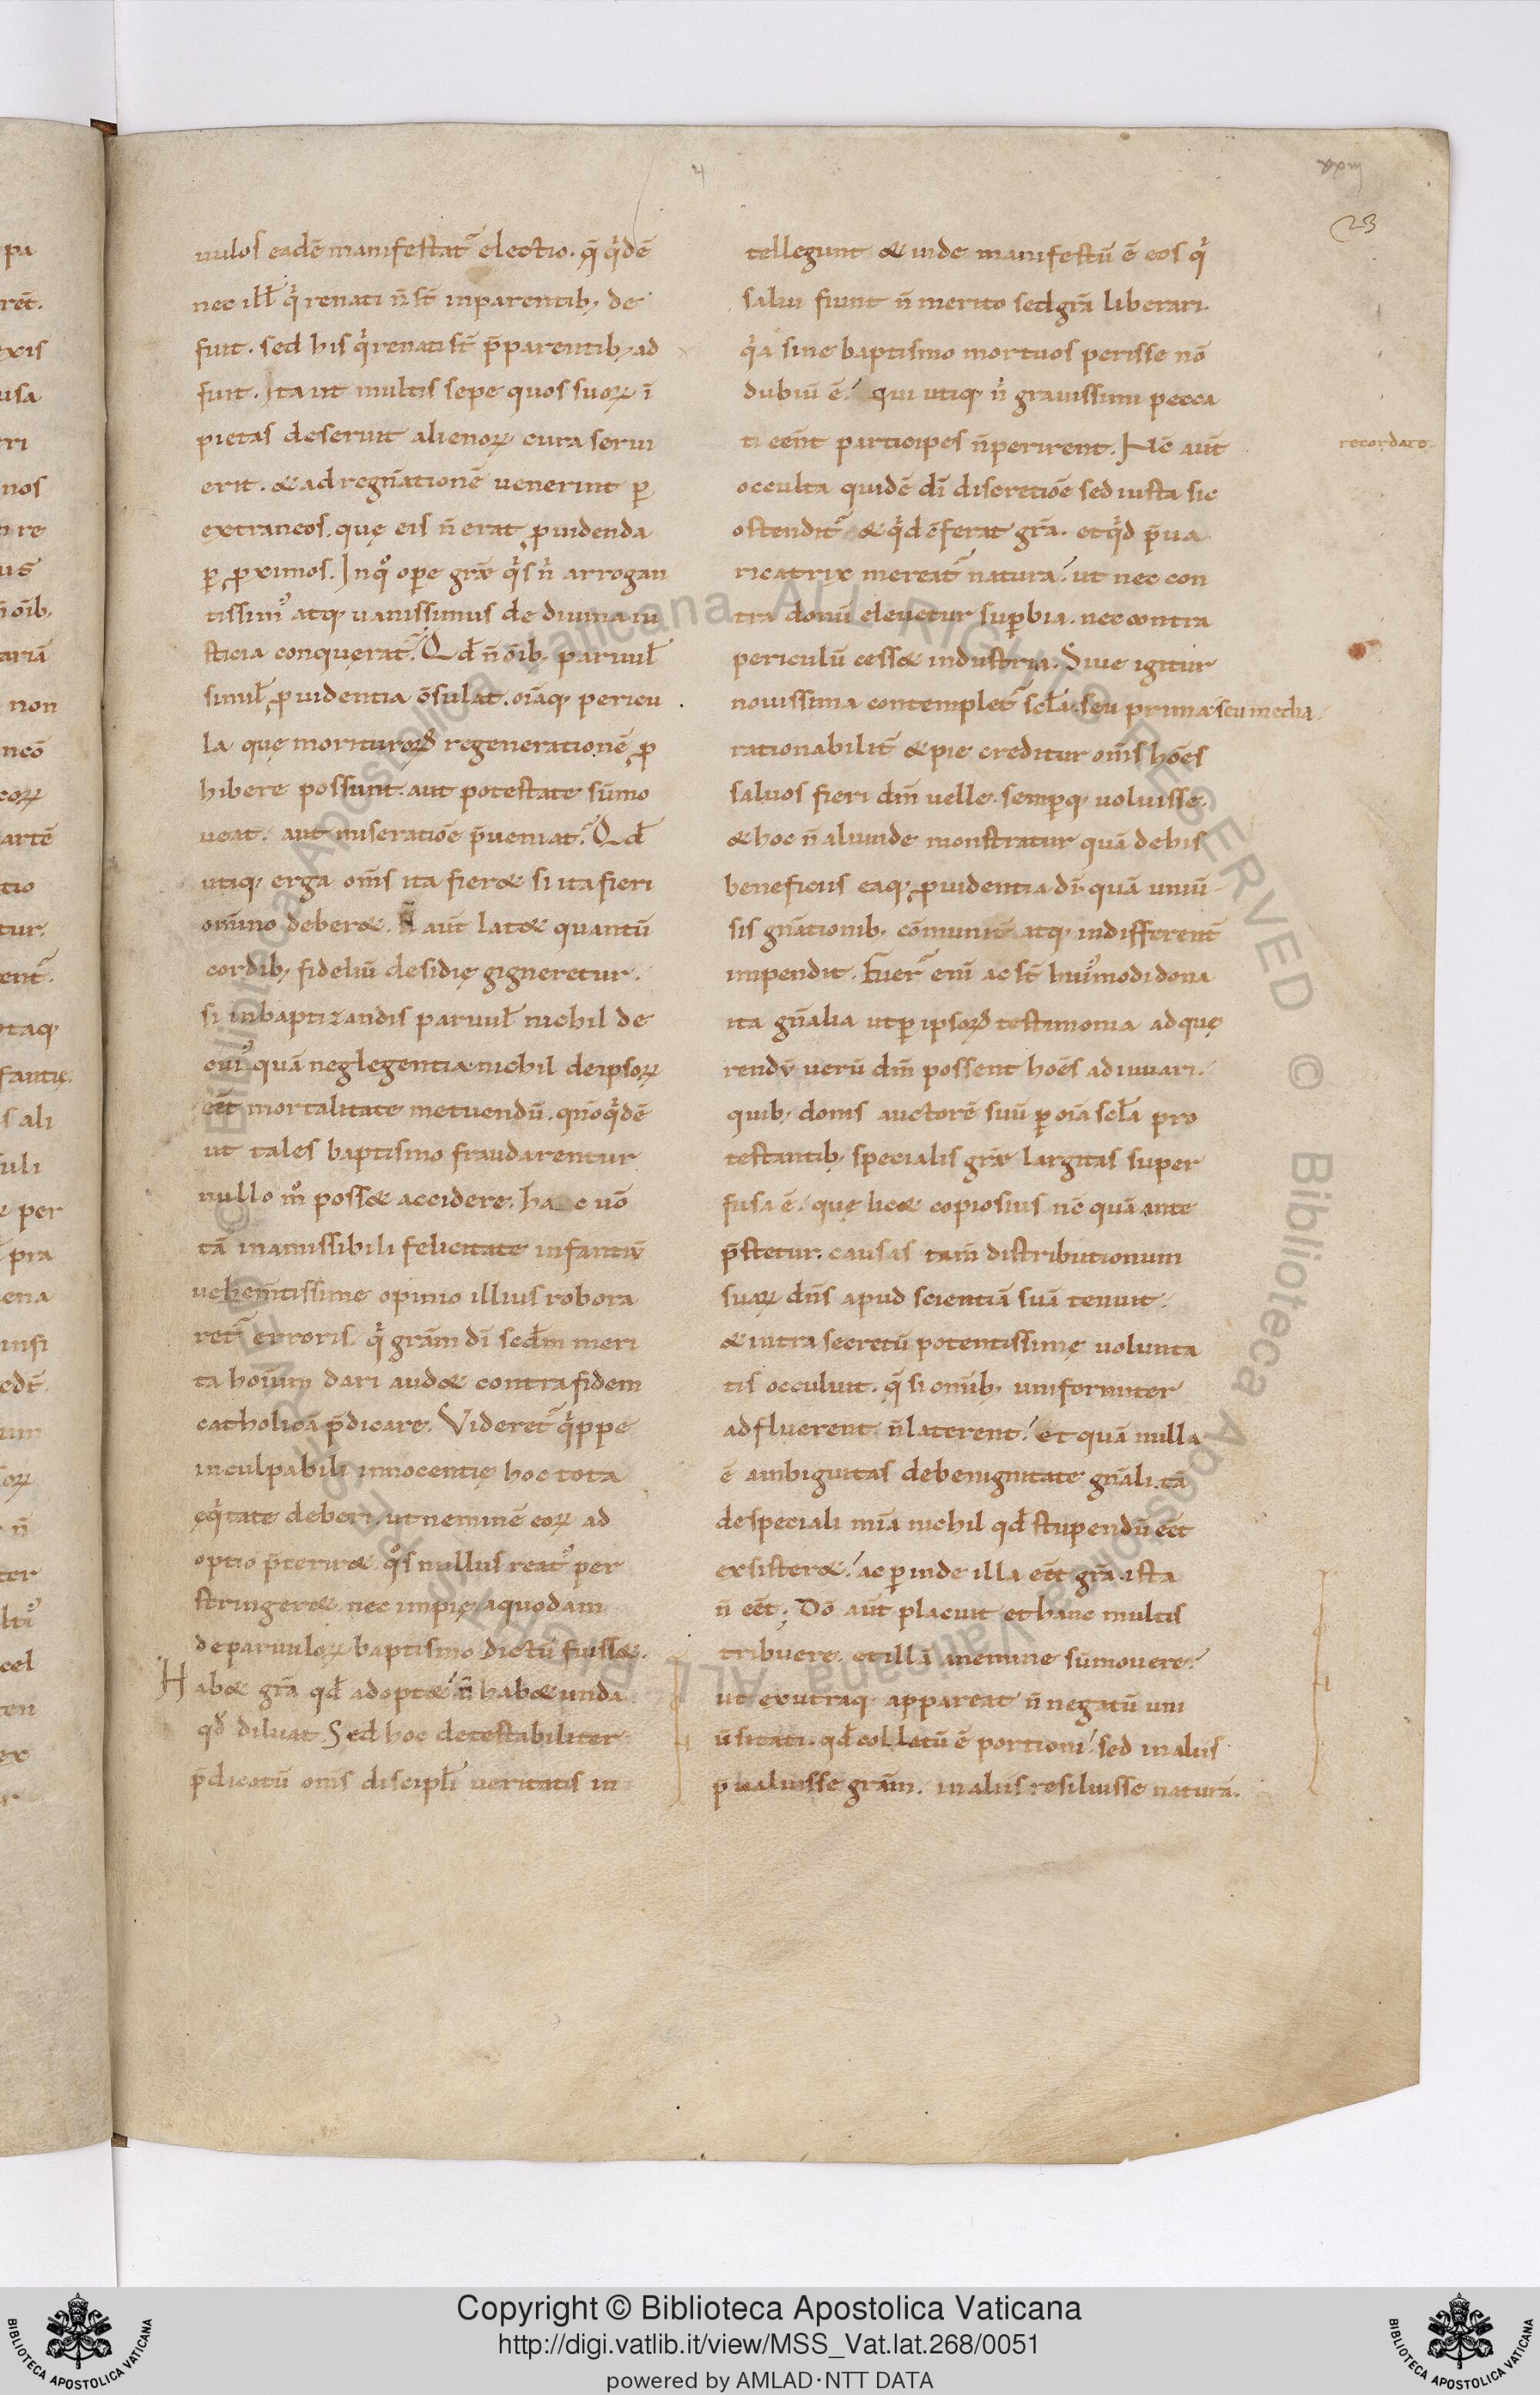 xxiii
23
uulos eadē manifestat᷑ electio. q̄ qͥdē
nec ill̄ qͥ renati n̄ st̄ inparentib; de
fuit. sed his qͥ renati st̄ p̄parentib; ad
fuit. Ita ut multis sepe quos suoꝝ ī
pietas deseruit alienoꝝ cura serui
erit. & ad regn̄ationē uenerint ꝑ
extraneos. quę eis n̄ erat ꝓuidenda
ꝑ ꝓximos. Inqͦ ope grē qͥs n̄ arrogan
tissimꝰ atq; uanissimus de diuina iu
sticia conquerat᷑. Qd̄ n̄ oīb; paruul̄
simil̄ ꝓuidentia ōsulat. oīaq; pericu
la quę moriturorꝝ regenerationē ꝓ
hibere possunt. aut potestate sūmo
ueat. aut miseratiōe p̄ueniat. Qd̄
utiq; erga om̄s ita fier& si ita fieri
om̄ino deber&. N̄ aūt lat& quantū
cordib; fideliū desidię gigneretur.
si inbaptizandis paruul̄ nichil de
cuiꝰ quā neglegentia nichil deipsoꝝ
eēt mortalitate metuendū. qn̄oqͥdē
ut tales baptismo fraudarentur
nullo mͦ poss& accidere. hac uō
tā inamissibili felicitate infantiū
uehem̄tissime opinio illius robora
ret᷑ erroris. qͥ grām dī scd̄m meri
ta hoīum dari aud& contra fidem
catholicā p̄dicare. Videret᷑ qͥppe
inculpabili innocentię hoc tota
ęqͥtate deberi. ut neminē eoꝝ ad
optio p̄terir&. qͦs nullus reatꝰ per
stringer& nec impię aquodam
deparuuloꝝ baptismo dictū fuiss&.
Hab& grā qd̄ adopt& n̄ hab& unda
qd̄ diluat. Sed hoc detestabiliter
p̄dicatū om̄s discipl̄i ueritatis in
tellegunt & inde manifestū ē eos qͥ
salui fiunt n̄ merito sed grā liberari.
qͥa sine baptismo mortuos perisse nō
dubiū ē. Qui utiq; n̄ grauissimi pecca
ti eēnt participes n̄ perirent. Hec aūt
occulta quidē dī discretiōe sed iusta sic
ostendit᷑ & qͥd cōferat grā. et qͥd p̄ua
ricatrix mereat᷑ natura. ut nec con
tra donū eleuetur suꝑbia. nec contra
periculū cess& industria. Siue igitur
nouissima contemplet᷑ scl̄a. seu prima seu media
rationabilit̄ & pie creditur om̄s hōes
saluos fieri dm̄ uelle. semꝑq; uoluisse.
& hoc n̄ aliunde monstratur quā dehis
beneficiis eaq; ꝓuidentia dī quā uniū
sis gn̄ationib; cōmunit̄ atq; indifferent̄
impendit. Fuer̄ enī ac st̄ huiꝰmodi dona
ita gn̄alia utꝑ ipsorꝝ testimonia adquę
rendū uerū dm̄ possent hōes adiuuari.
quib; donis auctorē suū ꝑ oīa scl̄a pro
testantib; specialis grē largitas super
fusa ē. quę lic& copiosius nc̄ quā ante
p̄stetur. causas tam̄ distributionum
suaꝝ dn̄s apud scientiā suā tenuit.
& intra secretū potentissimę uolunta
tis occuluit. q̄ si omīb; uniformiter
adfluerent n̄ laterent. et quā nulla
ē ambiguitas debenignitate gn̄ali. tā
despeciali mīa nichil qd̄ stupendū eēt
exsister&. ac ꝑinde illa eēt grā. ista
n̄ eēt. Dō aūt placuit et hanc multis
tribuere. et illā anemine sūmouere.
ut exutraq; appareat n̄ negatū uni
ūsitati. qd̄ collatū ē portioni. sed inaliis
p̄ualuisse grām. inaliis resiluisse naturā.
Copyright © Biblioteca Apostolica Vaticana
http://digi.vatlib.it/view/MSS_Vat.lat.268/0051
powered by AMLAD·NTT DATA
BIBLIOTECA APOSTOLICA VATICANA
BIBLIOTECA APOSTOLICA VATICANA